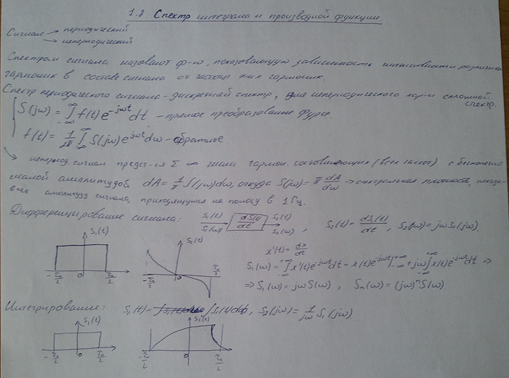 1.8 Спектр интеграла и производной функции
Сигнал → периодический
→ непериодический
Спектром сигнала называют ф-ю, показывающую зависимость интенсивности различных
гармоник в составе сигнала от частот этих гармоник.
Спектр периодического сигнала - дискретный спектр, для непериодического сплошной спектр.
S(jω) = ∫ f(t) e^{-jωt} dt - прямое преобразование Фурье
f(t) = 1/2π ∫ S(jω) e^{jωt} dω - обратное
сигнал Σ ∞ гармон. составляющих (всех частот) с бесконечно
малой амплитудой dA = 1/π S(jω)dω, откуда S(jω) = π dA/dω → спектральная плотность,
амплитуд сигнала, приходящуюся на полосу в 1 Гц.
Дифференцирование сигнала: S₁(t) S₁(ω) dS(t)/dt S₂(t) S₂(ω) , S₂(t) = dS₁(t)/dt , S₂(ω) = jω S₁(jω)
x'(t) = dx/dt
S₁(t) 0
S₂(t) 0
⇒ S₁(ω) = jω S(jω) , Sₙ(ω) = (jω)ⁿ S(jω)
Интегрирование: S₂(t) - ∫ S₁(t)dt, S₂(jω) = 1/jω S₁(jω)
S₁(t) 0
S₂(t) 0